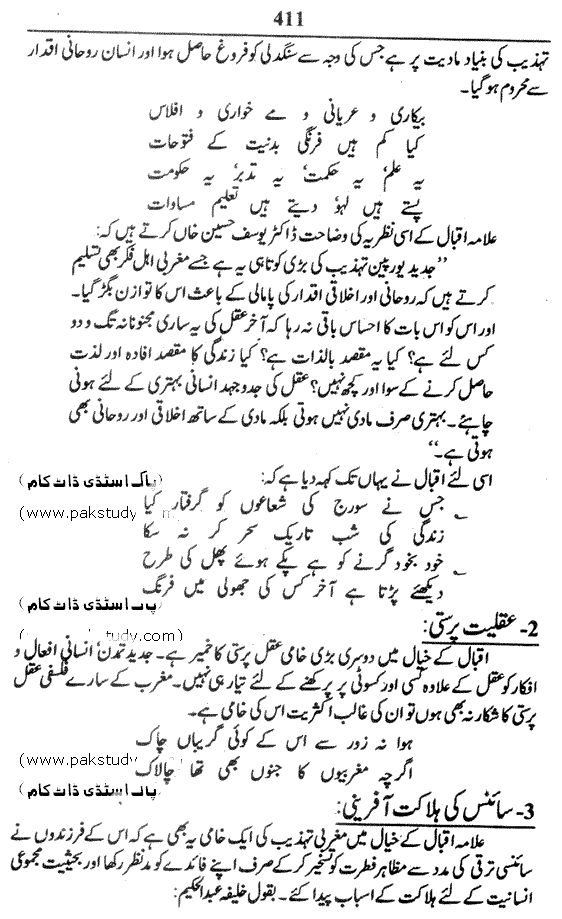 411
تہذیب کی بنیاد مادیت پر ہے جس کی وجہ سے سنگدلی کو فروغ حاصل ہوا اور انسان روحانی اقدار
سے محروم ہو گیا۔
بیکاری و عریانی و مے خواری و افلاس
کیا کم ہیں فرنگی مدنیت کے فتوحات
یہ علم، یہ حکمت، یہ تدبر، یہ حکومت
پیتے ہیں لہو، دیتے ہیں تعلیم مساوات
علامہ اقبال کے اسی نظریہ کی وضاحت ڈاکٹر یوسف حسین خاں کرتے ہیں کہ:
”جدید یورپین تہذیب کی بڑی کوتاہی یہ ہے جسے مغربی اہل فکر بھی تسلیم
کرتے ہیں کہ روحانی اور اخلاقی اقدار کی پامالی کے باعث اس کا توازن بگڑ گیا۔
اور اس کو اس بات کا احساس باقی نہ رہا کہ آخر عقل کی یہ ساری مجنونانہ تگ و دو
کس لئے ہے؟ کیا یہ مقصد بالذات ہے؟ کیا زندگی کا مقصد افادہ اور لذت
حاصل کرنے کے سوا اور کچھ نہیں؟ عقل کی جدوجہد انسانی بہتری کے لئے ہونی
چاہئے۔ بہتری صرف مادی نہیں ہوتی بلکہ مادی کے ساتھ اخلاقی اور روحانی بھی
ہوتی ہے۔“
اسی لئے اقبال نے یہاں تک کہہ دیا ہے کہ:
(پاک اسٹڈی ڈاٹ کام)
جس نے سورج کی شعاعوں کو گرفتار کیا
(www.pakstudy m)
زندگی کی شب تاریک سحر کر نہ سکا
خود بخود گرنے کو ہے پکے ہوئے پھل کی طرح
دیکھئے پڑتا ہے آخر کس کی جھولی میں فرنگ
(پاک اسٹڈی ڈاٹ کام)
2- عقلیت پرستی:
study.com)
اقبال کے خیال میں دوسری بڑی خامی عقل پرستی کا خمیر ہے۔ جدید تمدن، انسانی افعال و
افکار کو عقل کے علاوہ کسی اور کسوٹی پر پرکھنے کے لئے تیار ہی نہیں۔ مغرب کے سارے فلسفی عقل
پرستی کا شکار نہ بھی ہوں تو ان کی غالب اکثریت اس کی خامی ہے۔
ہوا نہ زور سے اس کے کوئی گریباں چاک
(www.pakstudy.com)
اگرچہ مغربیوں کا جنوں بھی تھا چالاک
(پاک اسٹڈی ڈاٹ کام)
3- سائنس کی ہلاکت آفرینی:
علامہ اقبال کے خیال میں مغربی تہذیب کی ایک خامی یہ بھی ہے کہ اس کے فرزندوں نے
سائنسی ترقی کی مدد سے مظاہر فطرت کو تسخیر کر کے صرف اپنے فائدے کو مدنظر رکھا اور بحیثیت مجموعی
انسانیت کے لئے ہلاکت کے اسباب پیدا کئے۔ بقول خلیفہ عبدالحکیم: